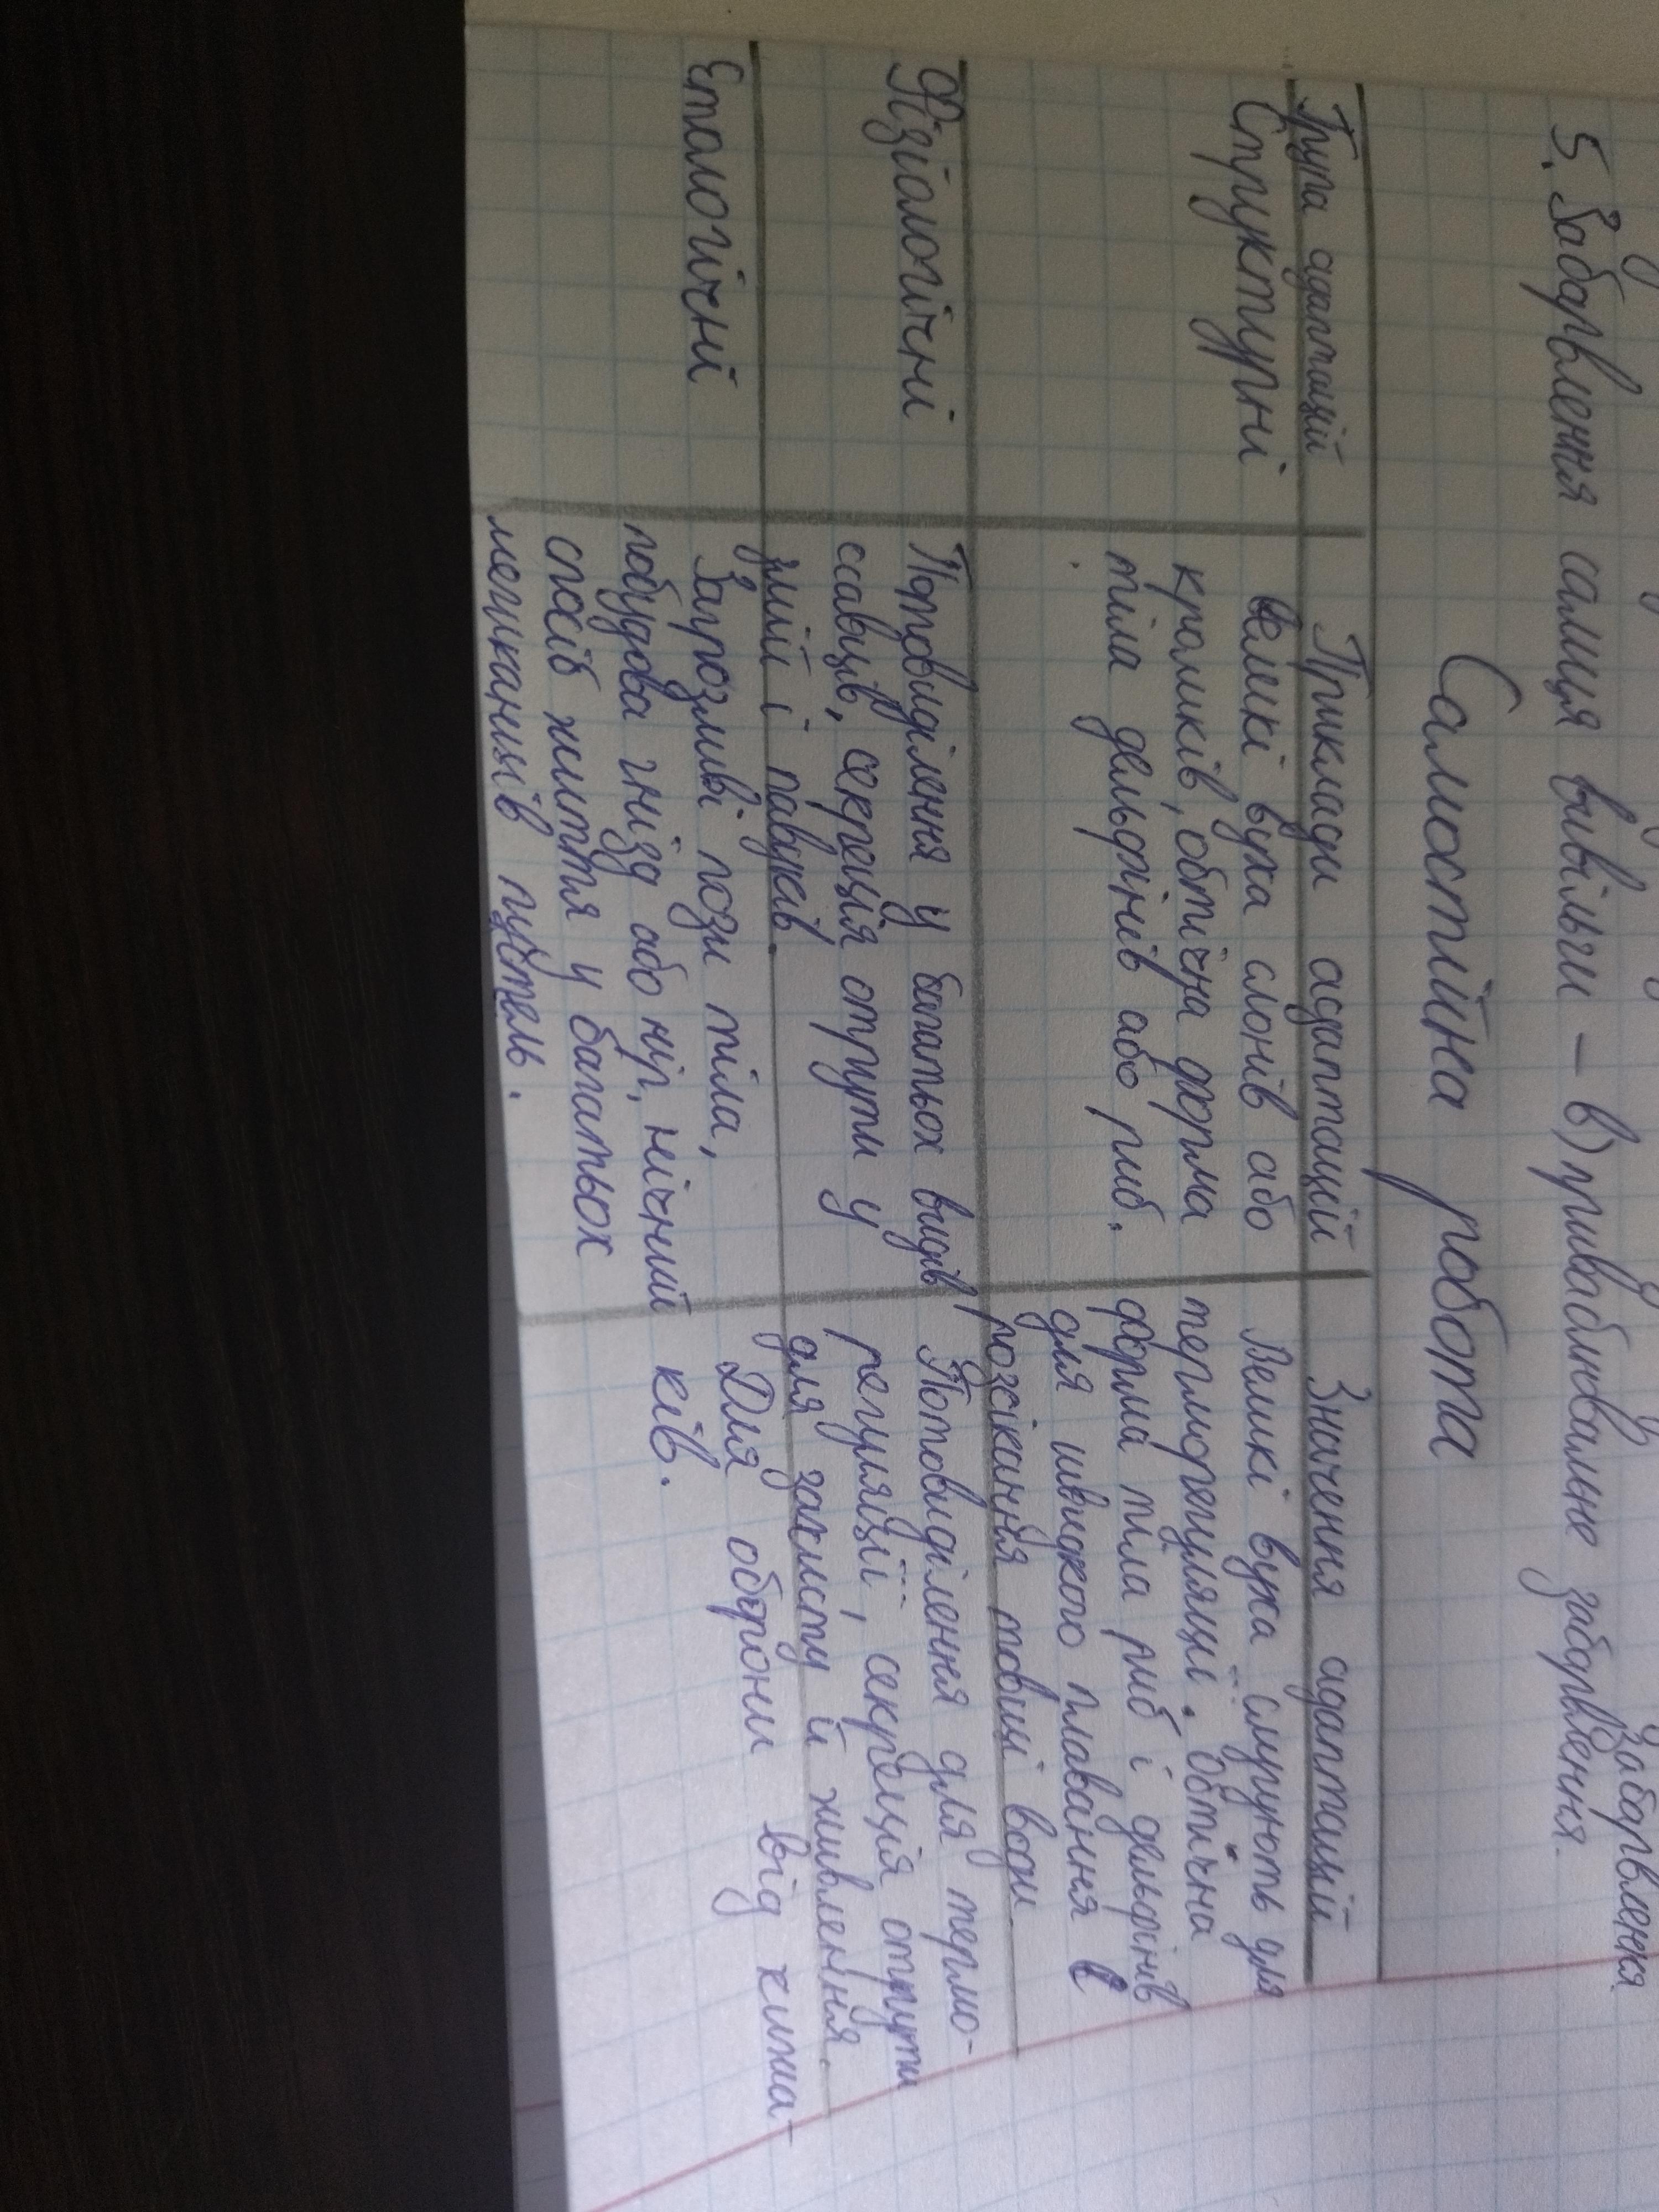 забарвлення
5. Забарвлення самця вивільги – в) приваблювальне забарвлення.
Самостійна робота
Група адаптацій
Приклади адаптацій
Значення адаптацій
Структурні
Великі вуха слонів або
кроликів, обтічна форма
тіла дельфінів або риб.
Великі вуха слугують для
терморегуляції. Обтічна
форма тіла риб і дельфінів
для швидкого плавання й
розсікання товщі води
Фізіологічні
Потовиділення у багатьох видів
ссавців, секреція отрути у
змій і павуків.
Потовиділення для термо-
регуляції, секреція отрути
для захисту й живлення.
Етологічні
Загрозливі пози тіла,
побудова гнізд або нір, нічний
спосіб життя у багатьох
мешканців пустель.
Для оборони від хижа-
ків.